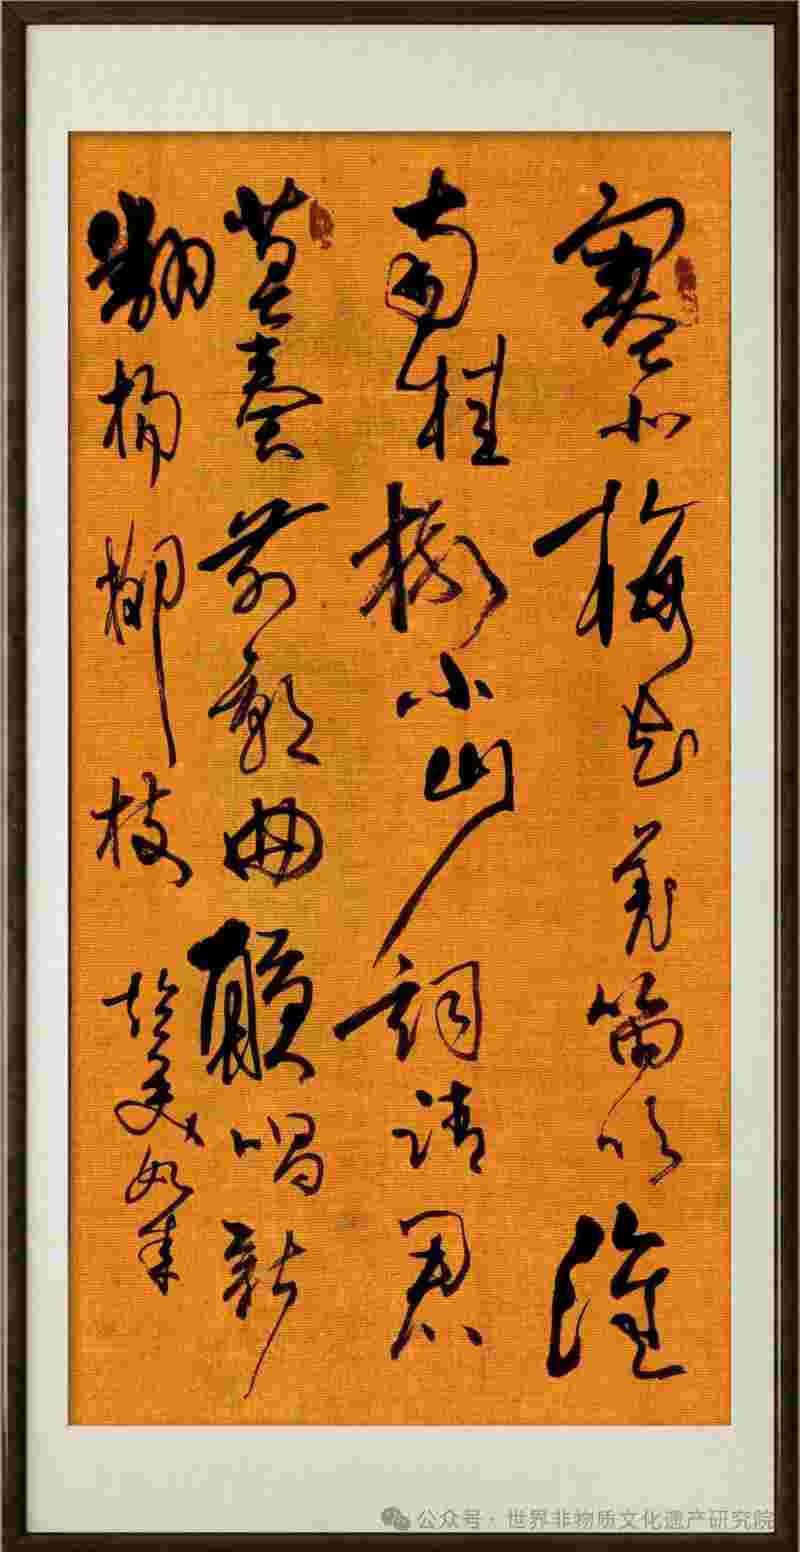 塞北梅花羌笛吹淮
南桂樹小山詞請君
莫奏前朝曲聽唱新
翻楊柳枝
公众号 · 世界非物质文化遗产研究院